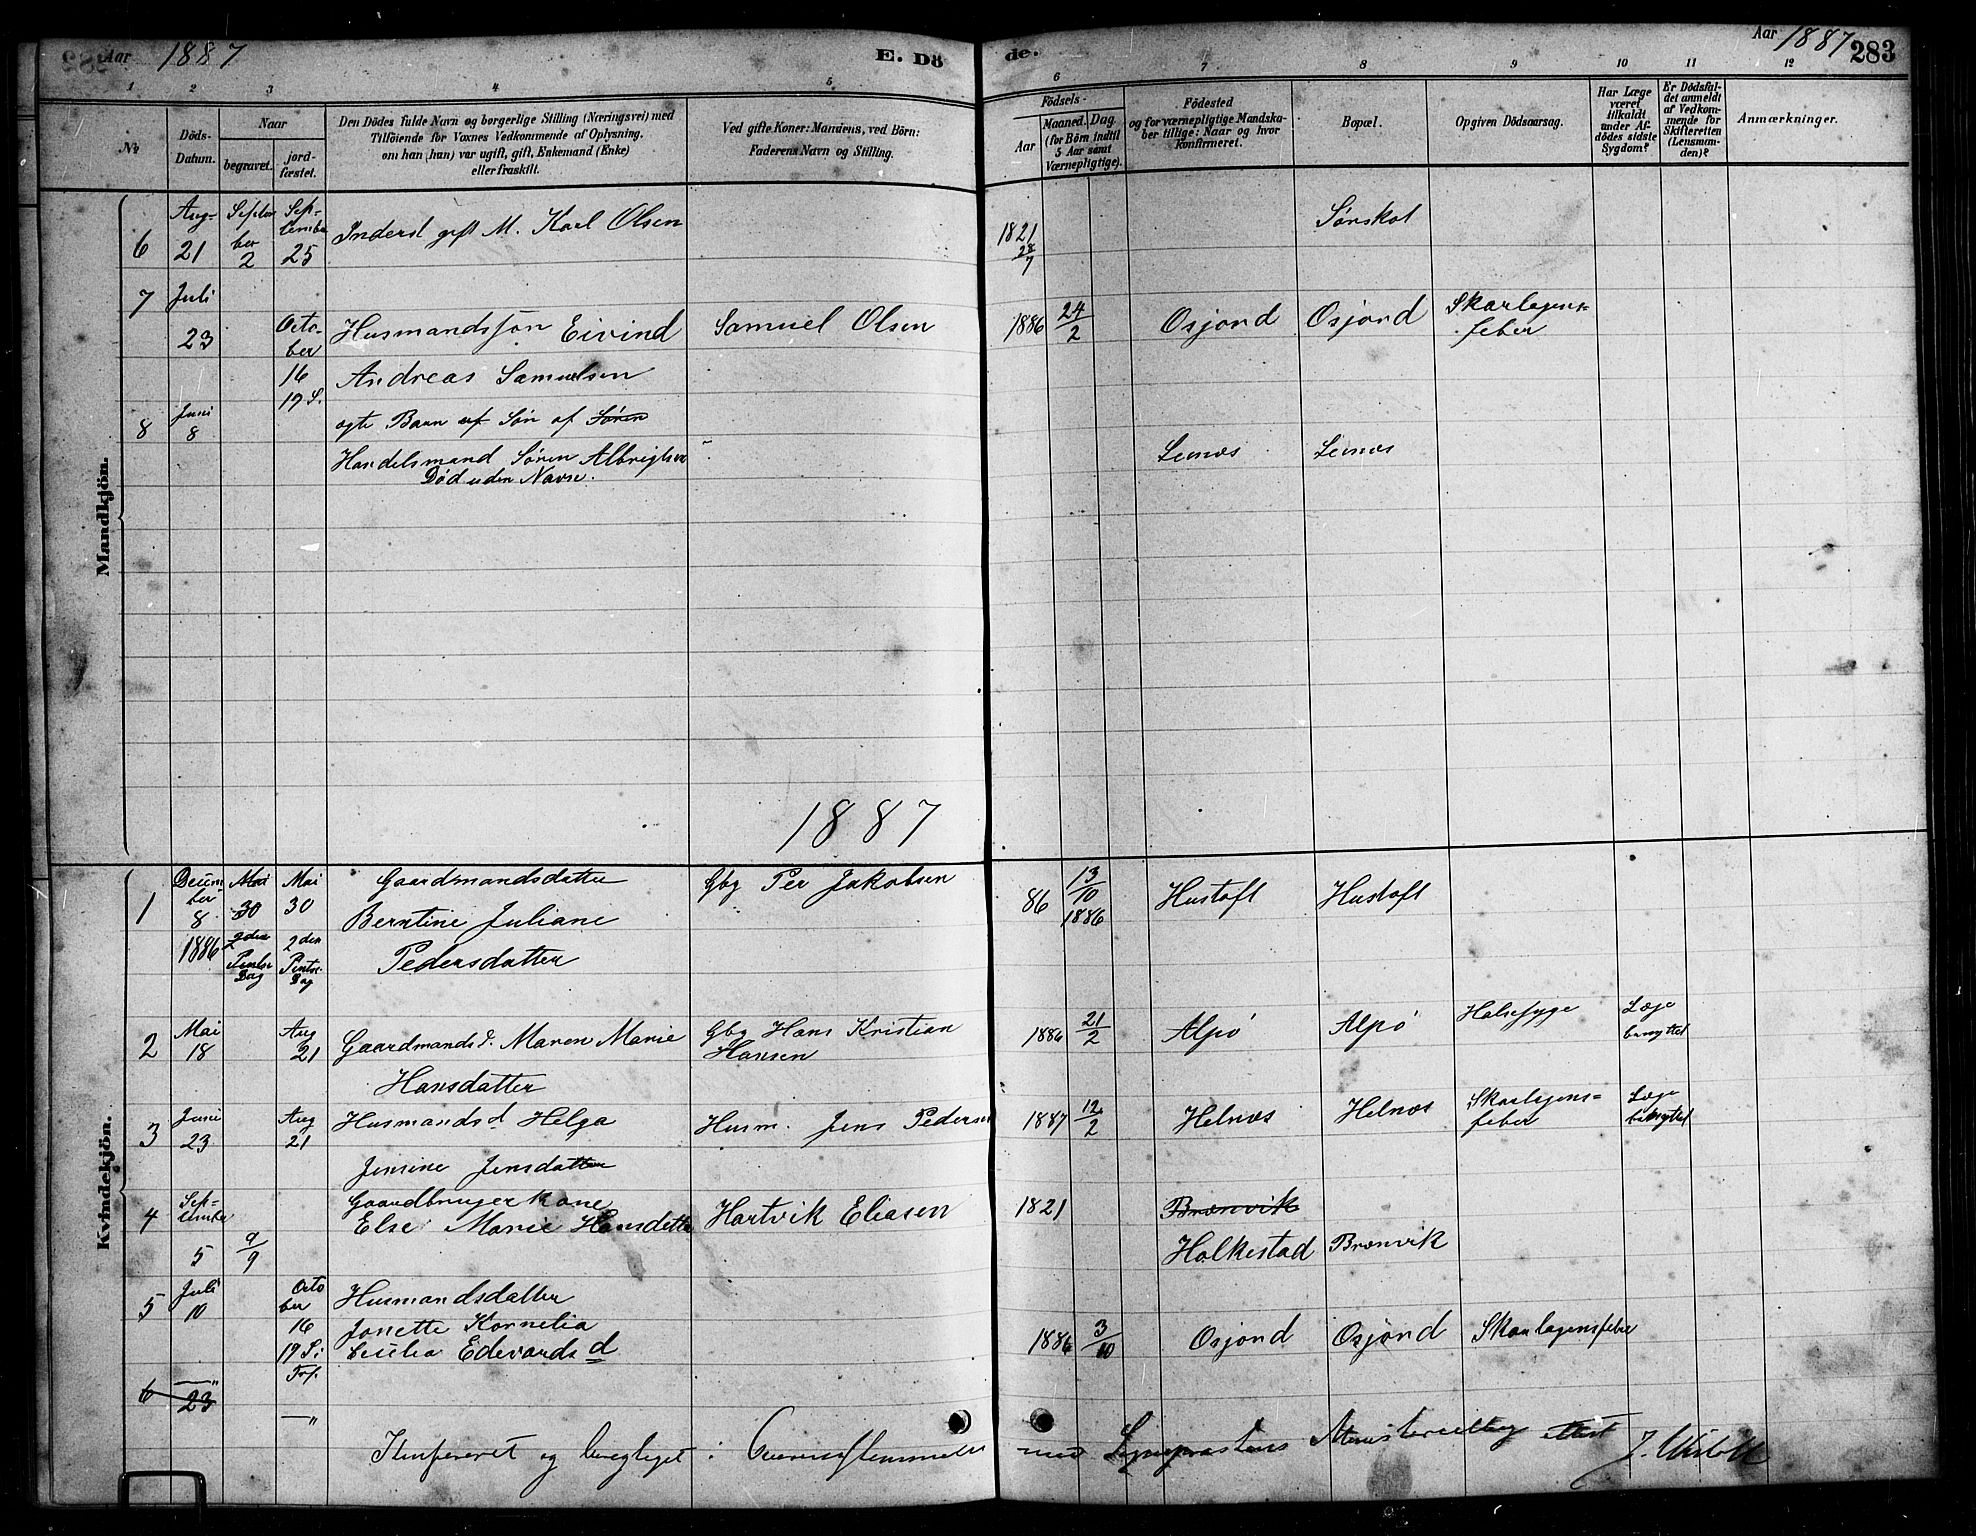 Aar 1887
E. Dö
de.
Aar 1887
283
1 2 3 4 5 6 7 8 9 10 11 12
No
Döds-
Datum.
Naar
begravet.
jord-
fæstet.
Den Dödes fulde Navn og borgerlige Stilling (Næringsvei) med
Tilföiende for Voxnes Vedkommende af Oplysning,
om han (hun) var ugift, gift, Enkemand (Enke)
eller fraskilt.
Ved gifte Koner: Mandens, ved Börn:
Faderens Navn og Stilling.
Födsels-
Aar
Maaned. Dag.
(for Börn indtil
5 Aar samt
Værnepligtige).
Födested
og for værnepligtige Mandska-
ber tillige: Naar og hvor
konfirmeret.
Bopæl.
Opgiven Dödsaarsag.
Har Læge
været
tilkaldt
under Af-
dödes sidste
Sygdom?
Er Dödsfal-
det anmeldt
af Vedkom-
mende for
Skifteretten
(Lensman-
den)?
Anmærkninger.
Mandkjön.
6 Aug- 21 Septem ber 2 Sep- tember 25 Inderst gift M. Karl Olsen 1821 28/7 Sørskot
7 Juli 23 Octo- ber 16 19 S. Husmandssøn Eivind Samuel Olsen 1886 24/2 Osjord Osjord Skarlagens- feber
Andreas Samuelsen
8 Juni 8 ægte Barn af Søn af Søren
Handelsmand Søren Albrigtsen Leines Leines
Død uden Navn.
1887
Kvindekjön.
1 Decem ber 8 1886 Mai 30 2den Pintse Dag Mai 30 2den Pintse Dag Gaardmandsdatter Gbg Per Jakobsen 86 13/10 1886 Hustoft Hustoft
Berntine Juliane
Pedersdatter
2 Mai 18 Aug 21 Gaardmandsd. Maren Marie Gbg Hans Kristian 1886 21/2 Alpø Alpø Halssyge Læge benyttet
Hansen
Hansdatter
3 Juni 23 Aug 21 Husmandsd Helga Husm. Jens Pedersen 1887 12/2 Helnes Helnes Skarlagens- feber Læge benyttet
Jensine Jensdatter
4 Sep- tember 5 9/9 Gaardbrugerkone
Else Marie Hansdatter Hartvik Eliasen 1821 Brænvik
Holkestad Brænvik
5 Juli 10 Octo ber 16 19 S. Husmandsdatter
Jonette Kornelia
Cecilia Edevards d 1886 3/10 Osjord Osjord Skarlagensfeber
6 23 —"
—"
og i Overensstemmelse med Ministerialbog